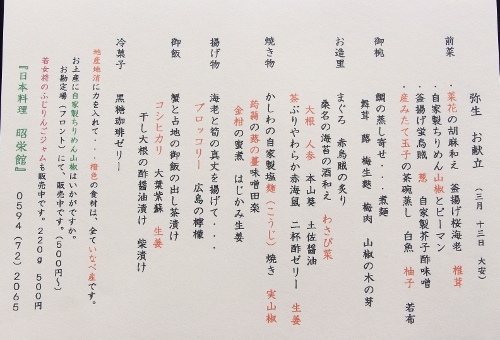 弥生 お献立 （三月 十三日 大安）
前菜
・菜花の胡麻和え 釜揚げ桜海老 椎茸
・自家製ちりめん山椒とピーマン
・釜揚げ蛍烏賊 葱 自家製芥子酢味噌
・産みたて玉子の茶碗蒸し 白魚 柚子 若布
御椀
鯛の蒸し寄せ・・・煮麺
舞茸 蕗 梅生麩 梅肉 山椒の木の芽
お造里
まぐろ 赤烏賊の炙り
桑名の海苔の酒和え わさび菜
大根 人参 本山葵 土佐醤油
茶ぶりやわらか赤海鼠 二杯酢ゼリー 生姜
焼き物
かしわの自家製塩麹（こうじ）焼き 実山椒
蒟蒻の蕗の薹味噌田楽
金柑の蜜煮 はじかみ生姜
揚げ物
海老と筍の真丈を揚げて・・・・
ブロッコリー 広島の檸檬
御飯
蟹と占地の御飯の出し茶漬け
コシヒカリ 大葉紫蘇 生姜
干し大根の酢醤油漬け 柴漬け
冷菓子
黒糖珈琲ゼリー
地産地消に力を入れて・・・橙色の食材は、全ていなべ産です。
お土産に自家製ちりめん山椒はいかがですか。
お勘定場（フロント）にて、販売中です。（500円～）
若女将のふじりんごジャムも販売中です。220g 500円
『日本料理 昭栄館』 0594（72）2065